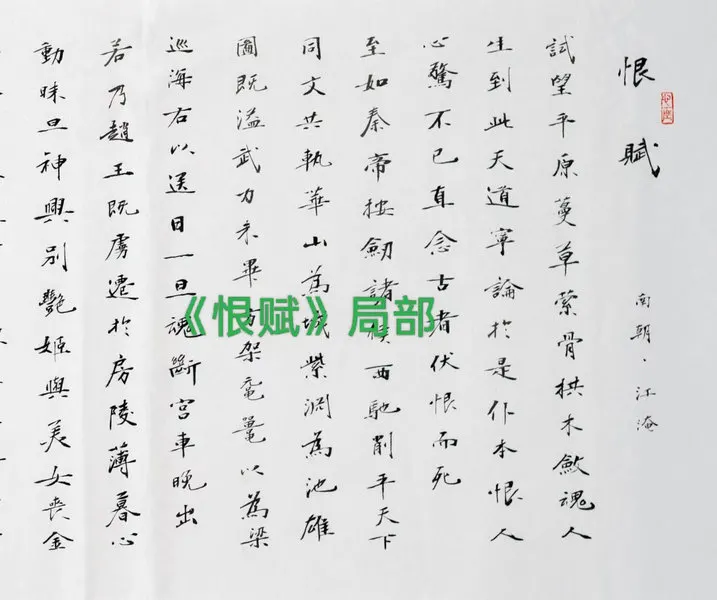 恨賦
南朝·江淹
試望平原蔓草縈骨拱木斂魂人
生到此天道寧論於是仆本恨人
心驚不已直念古者伏恨而死
至如秦帝按劒諸侯西馳削平天下
同文共軌華山為城紫淵為池雄
圖既溢武力未畢方架黿鼉以為梁
巡海右以送日一旦魂斷宮車晚出
若乃趙王既虜遷於房陵薄暮心
動昧旦神興別艷姬與美女喪金
《恨赋》局部